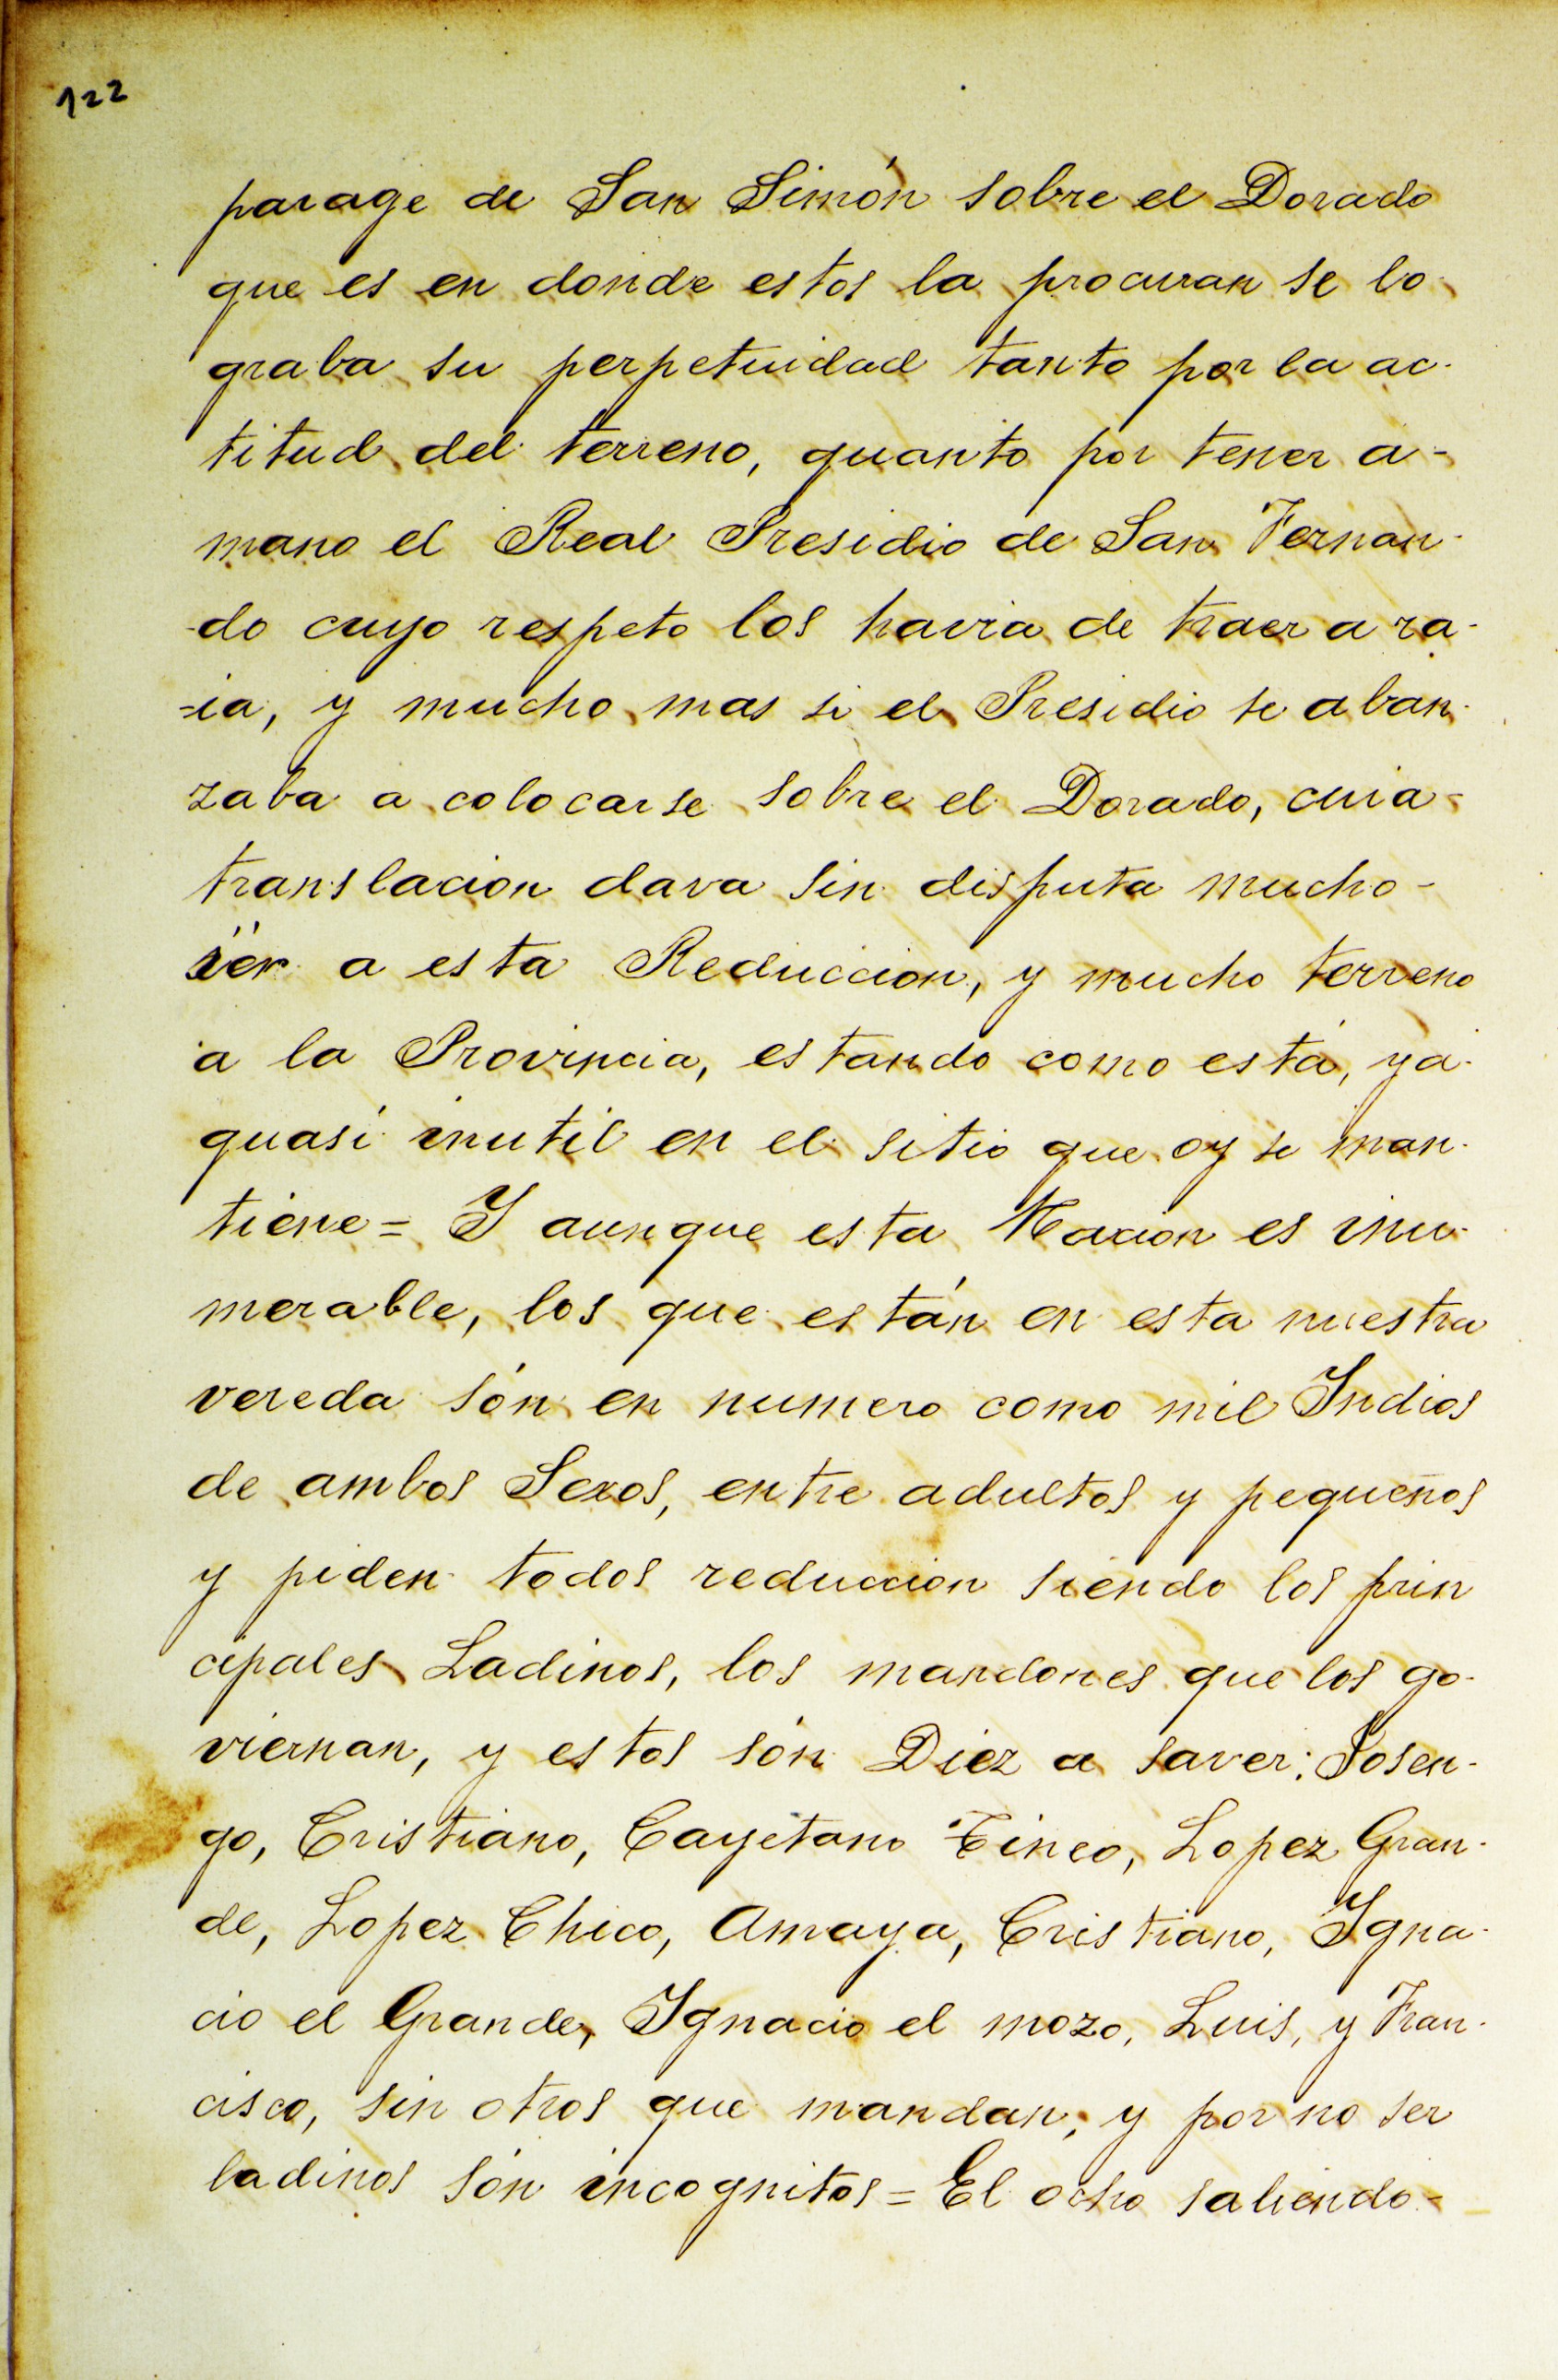 122
parage de San Simón sobre el Dorado
que es en donde estos la procuran se lo-
graba su perpetuidad tanto por la ac-
titud del terreno, quanto por tener a-
mano el Real Presidio de San Fernan-
-do cuyo respeto los havia de traer a ra-
-ia, y mucho mas si el Presidio se aban-
zaba a colocarse sobre el Dorado, cuia-
translacion dava sin disputa mucho-
sér a esta Reduccion, y mucho terreno
a la Provincia, estando como está, ya-
quasi inutil en el sitio que oy se man-
tiene = Y aunque esta Nacion es inu-
merable, los que están en esta nuestra
vereda són en numero como mil Indios
de ambos Sexos, entre adultos y pequeños
y piden todos reduccion siendo los prin
cipales Ladinos, los mandones que los go-
viernan, y estos són Diez a saver: Sosen-
go, Cristiano, Cayetano Tineo, Lopez Gran-
de, Lopez Chico, Amaya, Cristiano, Igna-
cio el Grande, Ignacio el mozo, Luis, y Fran-
cisco, sin otros que mandan, y por no ser
ladinos són incognitos = El ocho saliendo-